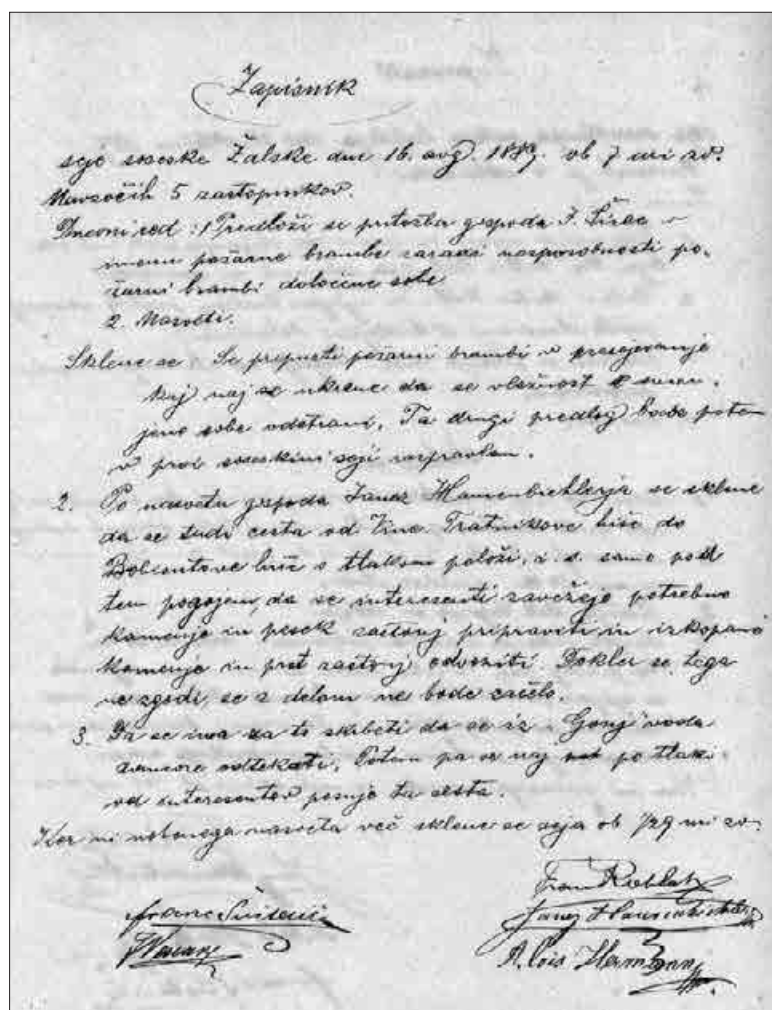 Zapisnik
seje soseske Žalske dne 16. avg. 1889. ob 7 uri zv.
Navzočih 5 zastopnikov.
Dnevni red: 1 Predloži se pritožba gospoda J. Širce v
imenu požarne brambe zaradi nesposobnosti po-
žarni brambi določene sobe
2. Nasveti.
Sklene se: Se prepusti požarni brambi v presojevanje
kaj naj se ukrene da se vlažnost
sobe odstrani. Ta drugi predlog bode potem
v prvi soseskini seji razpravlan.
2. Po nasvetu gospoda Janez Hausenbichlerja se sklene
da se tudi cesta od Vinc. Tratnikove hiše do
hiše s tlakom položi, i. s. samo pod
tem pogojem, da se interesenti zavežejo potrebno
kamenje in pesek zastonj pripraviti in izkopano
kamenje in prst zastonj odvoziti. Dokler se tega
ne zgodi, se z delom ne bode začelo.
3. Da se ima za to skrbeti da se iz voda
zamore odtekati. Potem pa se naj po tlaki
od interesentov ta cesta.
Ker ni nobenega nasveta več sklene se seja ob 1/29 uri zv.
Franc
Janez Hausenbichler
Alois Hermann